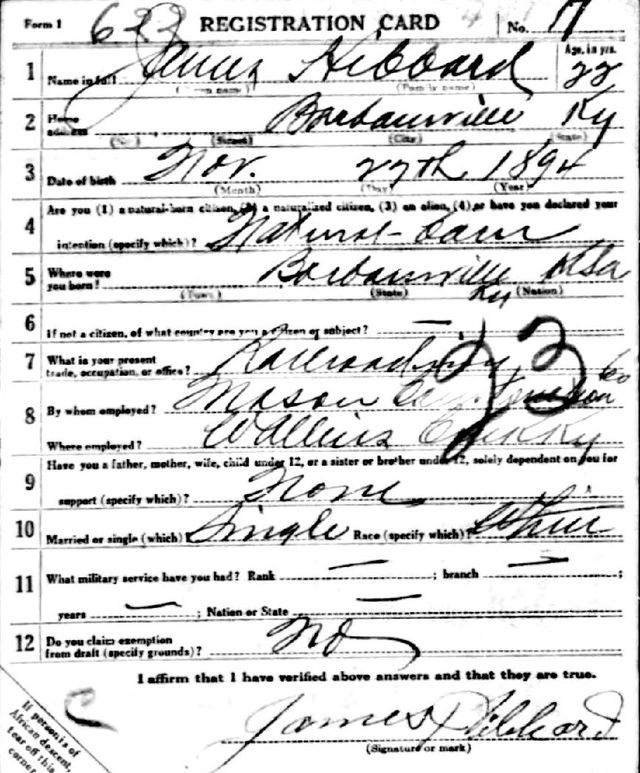 Form 1 622 REGISTRATION CARD No. 17
1 Name in full James Hibbard Age, in yrs. 22
(Given name) (Family name)
2 Home address Borbourville Ky
(No.) (Street) (City) (State)
3 Date of birth Nov. 27th 1894
(Month) (Day) (Year)
4 Are you (1) a natural-born citizen, (2) a naturalized citizen, (3) an alien, (4) or have you declared your
intention (specify which)? Natural-born
5 Where were you born? Borbourville Ky USA
(Town) (State) (Nation)
6 If not a citizen, of what country are you a citizen or subject? —
7 What is your present trade, occupation, or office? Railroading 23
8 By whom employed? Mason Co
Where employed? Wallins Creek Ky
9 Have you a father, mother, wife, child under 12, or a sister or brother under 12, solely dependent on you for
support (specify which)? None
10 Married or single (which)? Single Race (specify which)? White
11 What military service have you had? Rank — ; branch — ;
years — ; Nation or State —
12 Do you claim exemption from draft (specify grounds)? No
I affirm that I have verified above answers and that they are true.
James Hibbard
(Signature or mark)
If person is of
African descent,
tear off this
corner